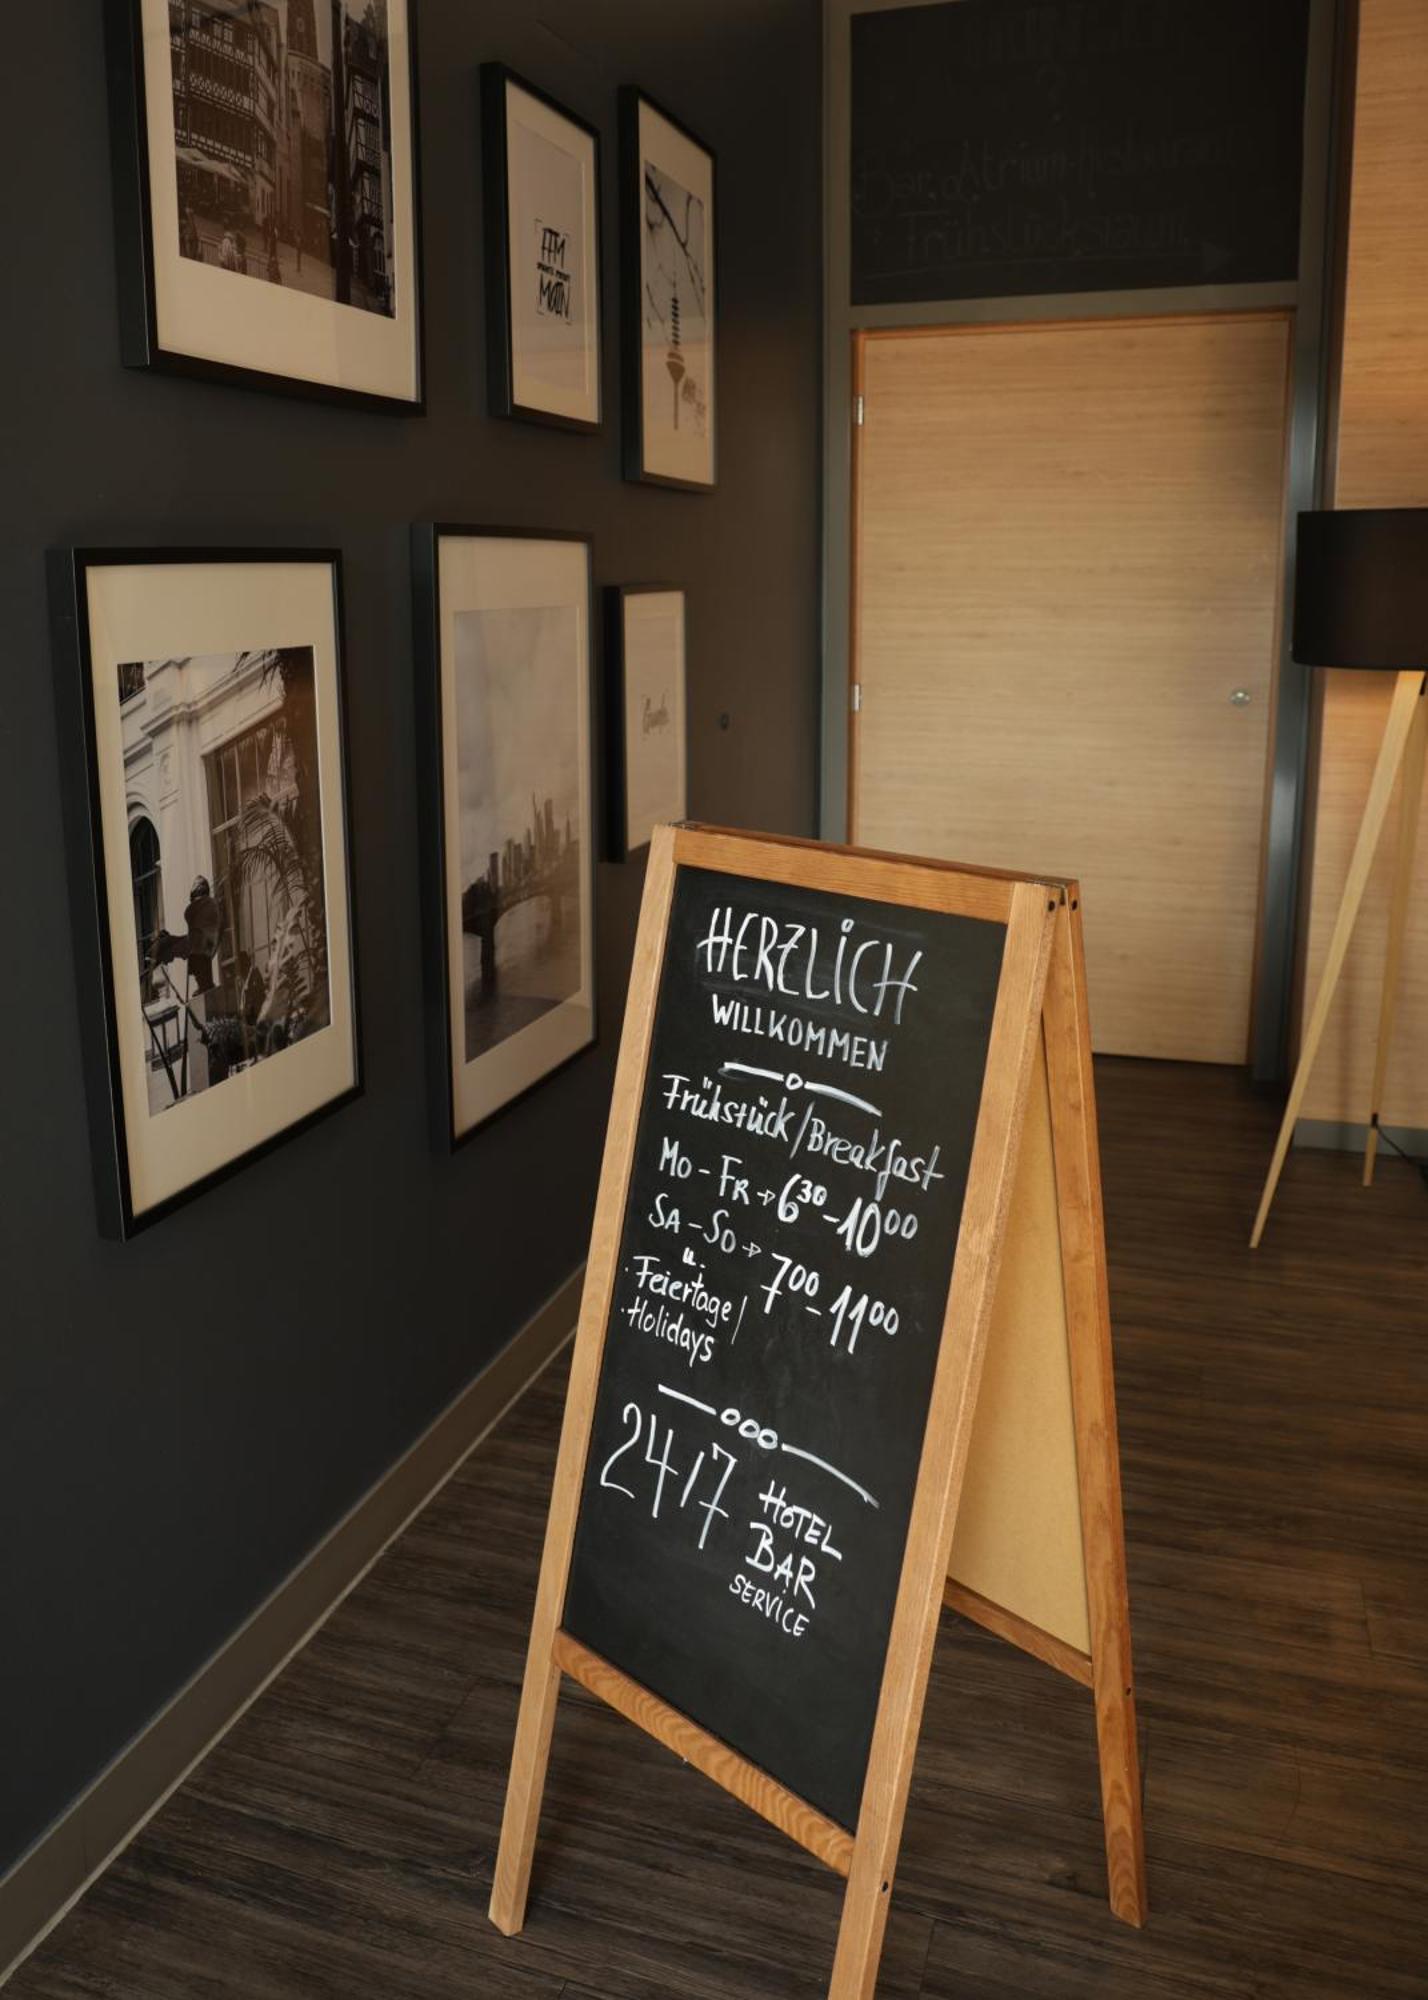 Bar, Atrium-Restaurant
Frühstücksraum
FFM
MAIN
HERZLiCH
WILLKOMMEN
Frühstück/Breakfast
MO - FR → 6³⁰ - 10⁰⁰
SA - SO → 7⁰⁰ - 11⁰⁰
u.
Feiertage/
Holidays
24/7
HOTEL
BAR
SERVICE